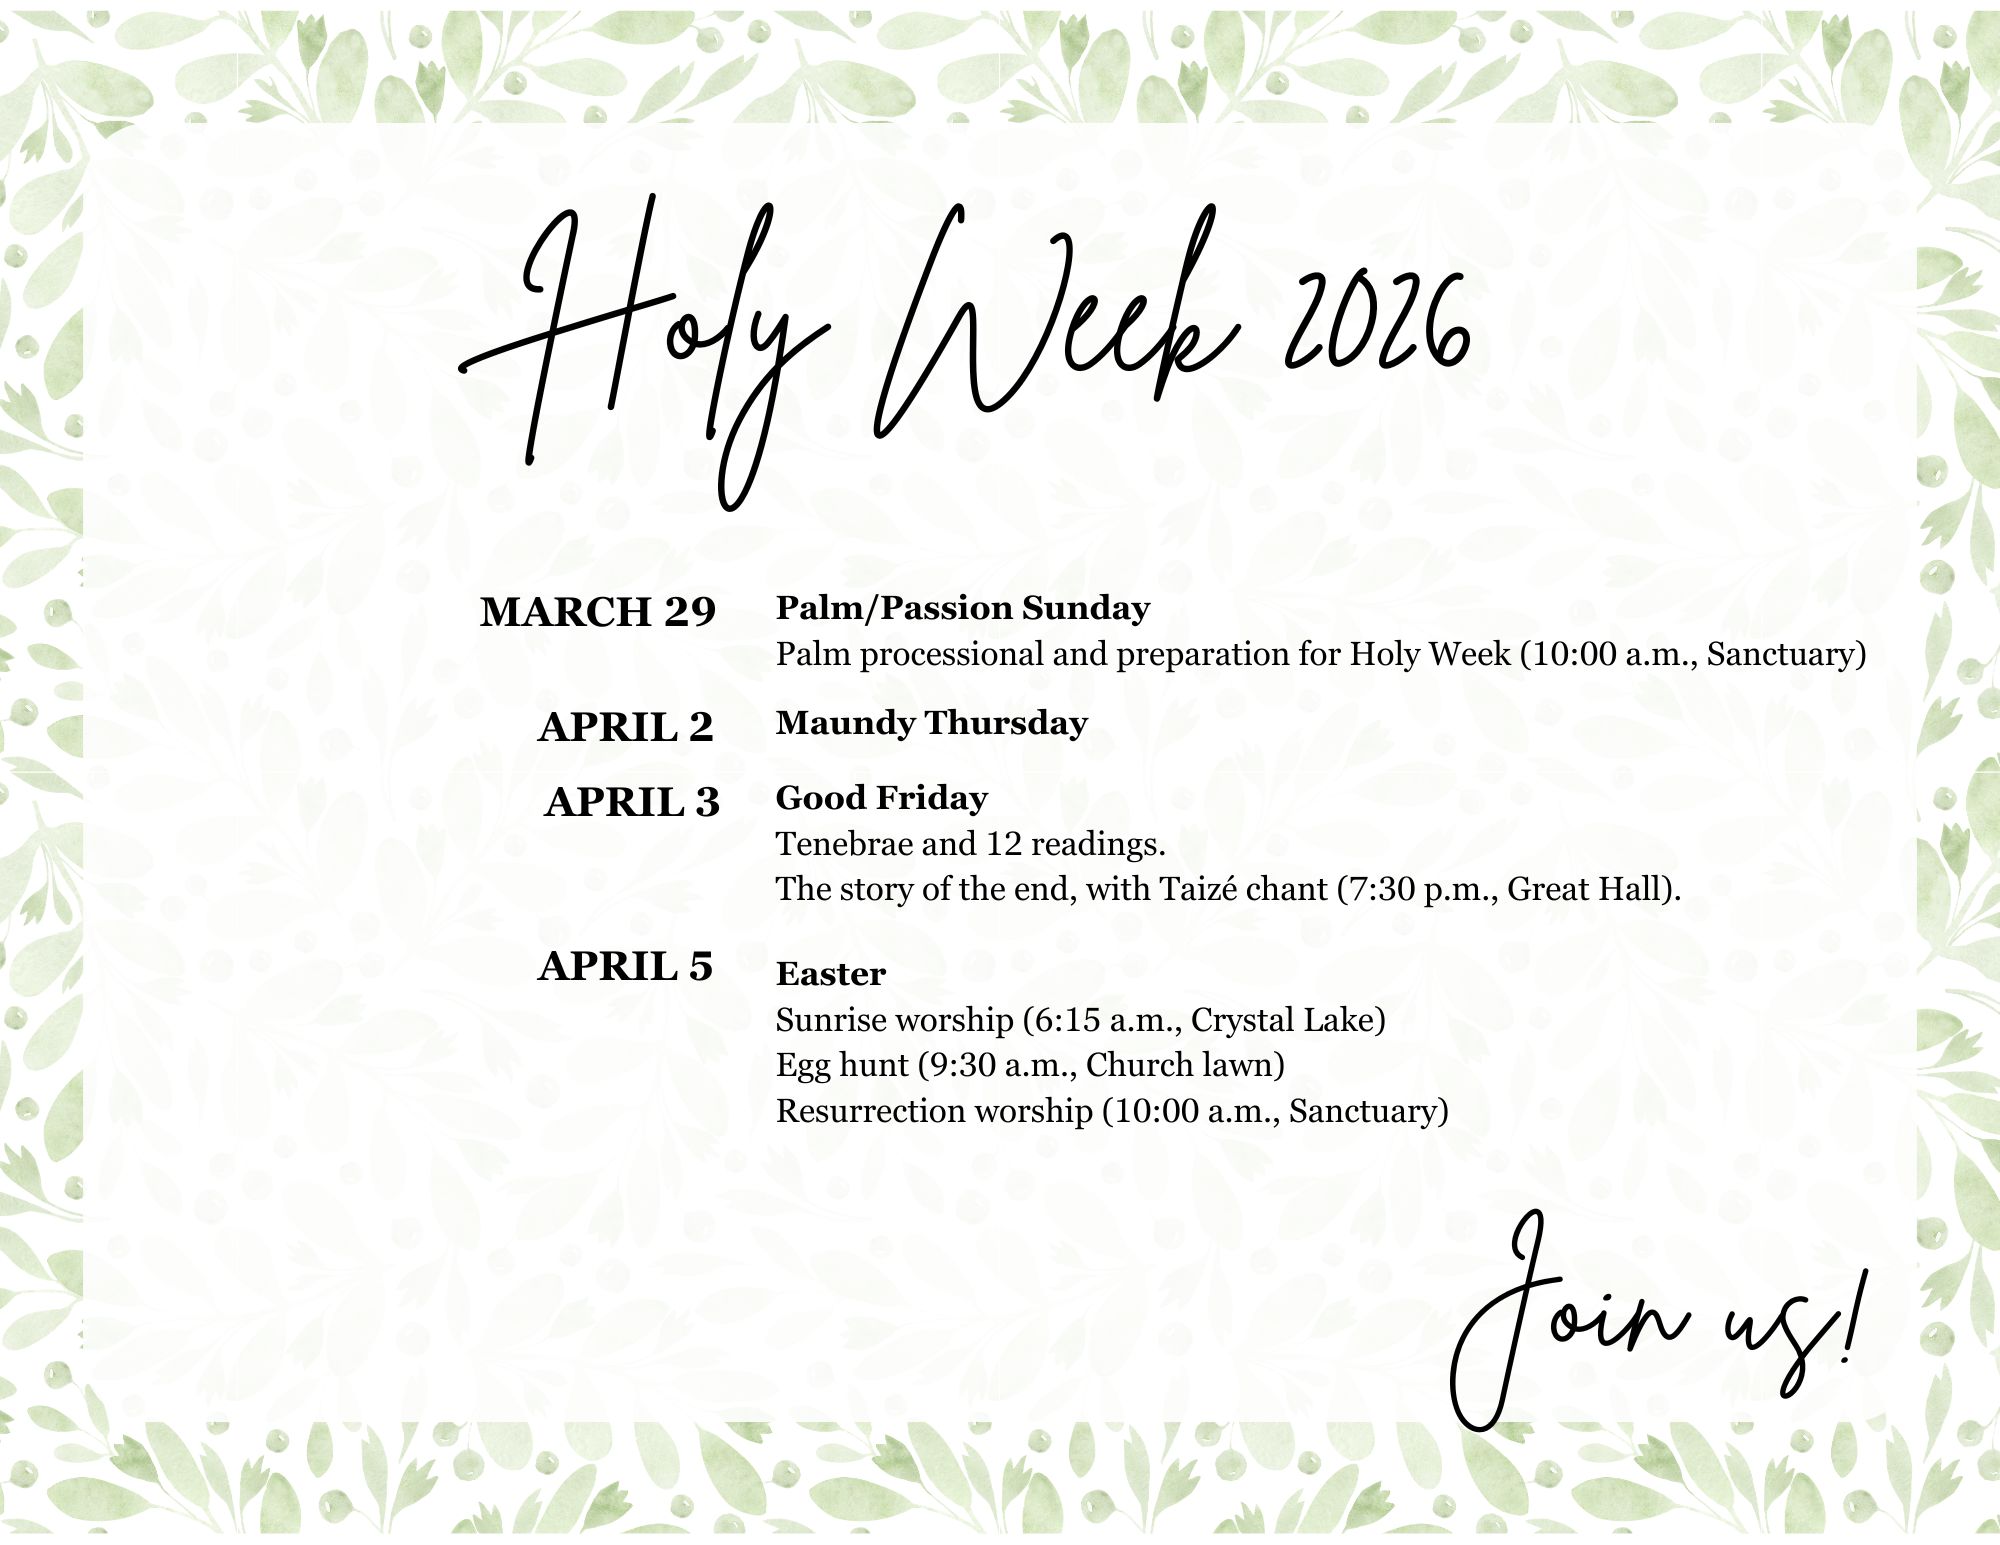 Holy Week 2026
MARCH 29
Palm/Passion Sunday
Palm processional and preparation for Holy Week (10:00 a.m., Sanctuary)
APRIL 2
Maundy Thursday
APRIL 3
Good Friday
Tenebrae and 12 readings.
The story of the end, with Taizé chant (7:30 p.m., Great Hall).
APRIL 5
Easter
Sunrise worship (6:15 a.m., Crystal Lake)
Egg hunt (9:30 a.m., Church lawn)
Resurrection worship (10:00 a.m., Sanctuary)
Join us!